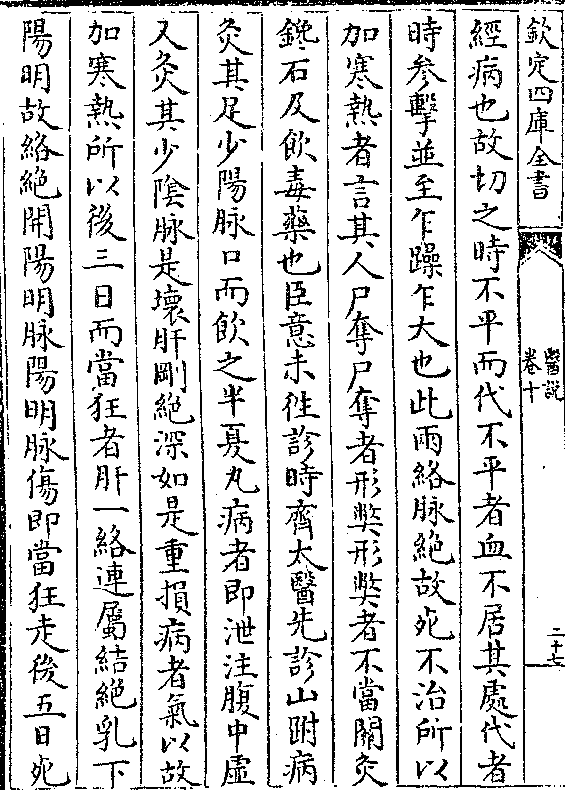 欽定四庫全書
醫說
卷十
二十七
經病也故切之時不平而代不平者血不居其處代者
時参擊並至乍躁乍大也此兩絡脉絶故死不治所以
加寒熱者言其人尸奪尸奪者形獘形獘者不當關灸
鑱石及飲毒藥也臣意未徃診時齊太醫先診山跗病
灸其足少陽脉口而飲之半夏丸病者即泄注腹中虛
又灸其少隂脉是壞肝剛絶深如是重損病者氣以故
加寒熱所以後三日而當狂者肝一絡連屬結絶乳下
陽明故絡絶開陽明脉陽明脉傷即當狂走後五日死